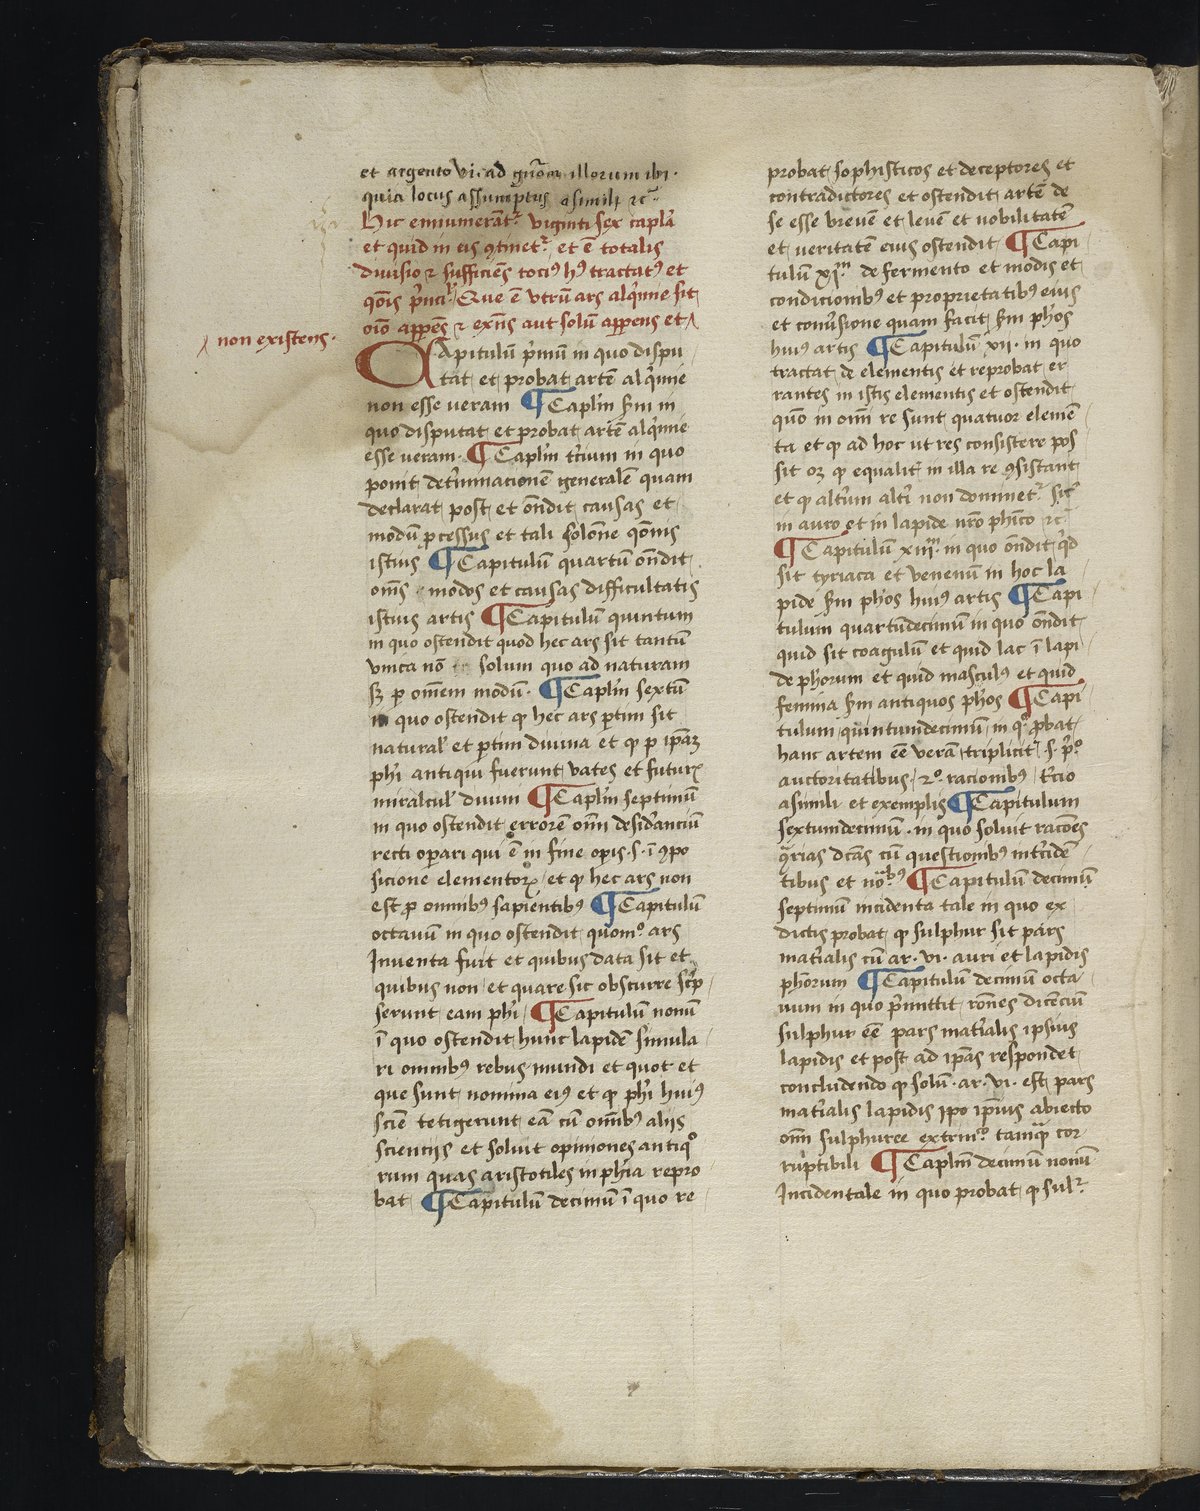 et argento vi. ad gnāōm illorum ibi.
quia locus assumptus a simili ⁊c̄
Hic enumerāt᷑ viginti sex capl'a
et quid in eis ꝯtinet᷑ et ē totalis
diuisio ⁊ sufficiēs tociꝰ hꝰ tractatꝰ et
qōis p'nci. Que ē vtrū ars alq'mie sit
oīo apparēs ⁊ exn̄s aut solū apparens et
non existens.
Capitulū p'mū in quo dispu
tat et probat artē alq'mie
non esse ueram ¶ Caplm̄ scd'm in
quo disputat et probat artē alq'mie
esse ueram. ¶ Caplm̄ t'cium in quo
ponit det'minacionē generalē quam
declarat post et on̄dit causas et
modū ꝓcessus et tali solōne qōnis
istius ¶ Capitulū quartū on̄dit
om̄s modos et causas difficultatis
istius artis ¶ Capitulū quintum
in quo ostendit quod hec ars sit tantū
vnica nō solum quo ad naturam
sꝫ ꝑ om̄em modū. ¶ Caplm̄ sextū
in quo ostendit ꝙ hec ars ꝑtim sit
natural' et ꝑtim diuina et ꝙ ꝑ ip̄aꝫ
ph'i antiqui fuerunt vates et futurꝝ
miralcul' diuini ¶ Caplm̄ septimū
in quo ostendit errorē om̄i desid'anciū
recti oꝑari qui ē in fine opis .s. ī ꝯpo
sicione elementoꝝ et ꝙ hec ars non
est ꝓ omnibꝰ sapientibꝰ ¶ Capitulū
octauū in quo ostendit quomº ars
Inuenta fuit et quibus data sit et
quibus non et quare sic obscure sc'p
serunt eam ph'i ¶ Capitulū nonū
ī quo ostendit hunc lapidē simula
ri omnibꝰ rebus mundi et quot et
que sunt nomina eiꝰ et ꝙ ph'i huiꝰ
sciē tetigerunt eā cū om̄ibꝰ alijs
sciencijs et soluit opiniones antiqº
rum quas aristotiles in ph'ia repro
bat ¶ Capitulū decimū ī quo re
probat sophisticos et deceptores et
contradictores et ostendit artē de
se esse breuē et leuē et nobilitatē
et ueritatē eius ostendit ¶ Capi
tulū xjᵐ. de fermento et modis et
condicionibꝰ et proprietatibꝰ eius
et conu'sione quam facit scd'm ph'os
huiꝰ artis ¶ Capitulū xii. in quo
tractat de elementis et reprobat er
rantes in istis elementis et ostendit
quō in om̄i re sunt quatuor elemē
ta et ꝙ ad hoc ut res consistere pos
sit oꝫ ꝙ equalit' in illa re ꝯsistant
et ꝙ alt'um alt'i non dominet᷑ sic'
in auro et in lapide nr̄o ph'ico ⁊c̄
¶ Capitulū xiijᵐ. in quo on̄dit q'd
sit tyriaca et uenenū in hoc la
pide scd'm ph'os huiꝰ artis ¶ Capi
tulum quartūdecimū in quo on̄dit
quid sit coagulū et quid lac ī lapi
de ph'orum et quid masculꝰ et quid
femina scd'm antiquos ph'os ¶ Capi
tulum quintumdecimū in qº ꝓbat
hanc artem eē verā triplicit' .s. p'º
auctoritatibus. ⁊º. racionibꝰ t'cio
a simili et exemplis ¶ Capitulum
sextumdecimū. in quo soluit racōes
ꝯtrarias dc̄as cū questionibꝰ int'cidē
tibus et noᵃbꝰ ¶ Capitulū decimū
septimū incidentale in quo ex
dictis probat ꝙ sulphur sit pars
mat'ialis cū ar. vi. auri et lapidis
ph'orum ¶ Capitulū decimū octa
uum in quo p'mittit rōnes dicēciū
sulphur eē pars mat'ialis ipsius
lapidis et post ad ip̄as respondet
concludendo ꝙ solū. ar. vi. est pars
mat'ialis lapidis ipo ip'ius abiecto
om̄i sulphuree extrinᶜº. tamq̄ cor
ruptibili ¶ Caplm̄ decimū nonū
Incidentale in quo probat ꝙ sul᷑.